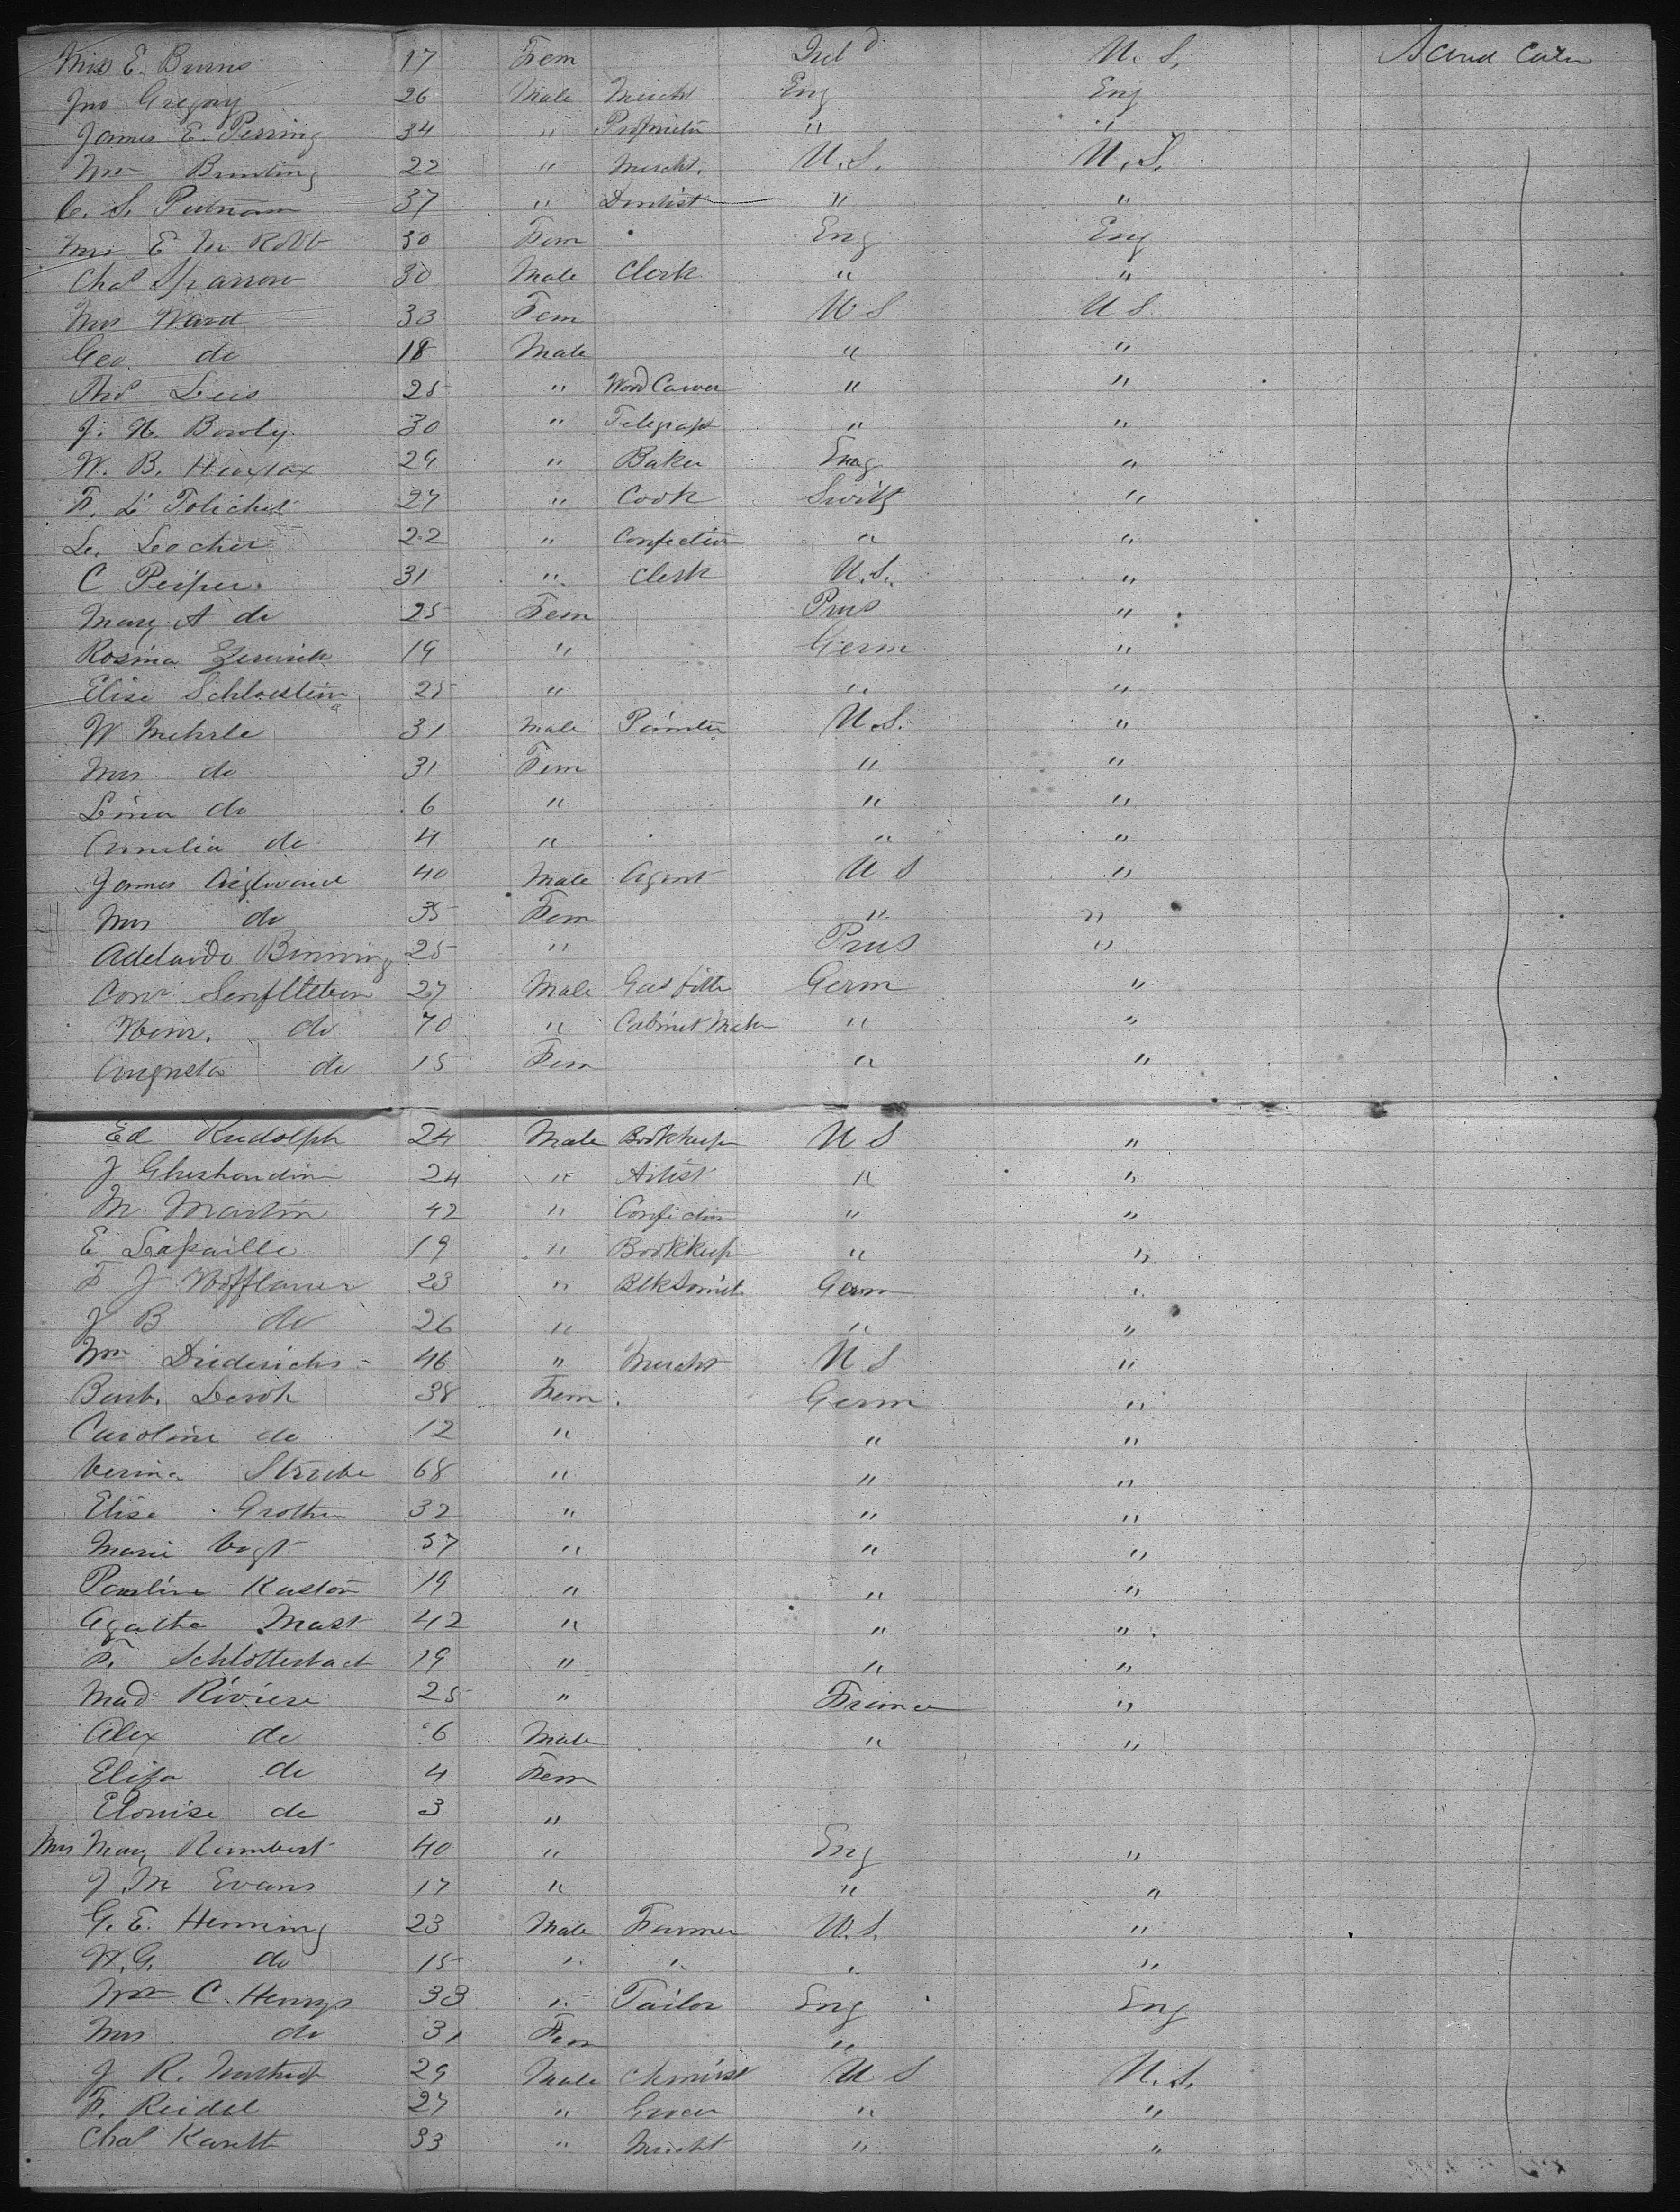 Miss E. Burns 17 Fem Irel^d U. S. Second Cabin
Jno Gregory 26 Male Mercht Eng Eng
James E. Perring 34 " Proprietor " "
Wm Bunting 22 " Mercht. U.S. U.S.
C. S. Putnam 37 " Dentist " "
Mrs E M Robb 30 Fem Eng Eng
Chas Sparrow 30 Male Clerk " "
Mrs Ward 33 Fem U S U S
Geo. do 18 Male " "
Thos 25 " Wood Carver " "
J. H. Bowly 30 " Telegraph " "
W. B. 29 " Baker Eng "
F. L. 27 " Cook Switz "
L. Locher 22 " Confection " "
C Peiper 31 " Clerk U.S. "
Mary A do 25 Fem Prus "
Rosina 19 " Germ "
Elise Schloestein 25 " " "
W Mehrle 31 Male Painter U.S. "
Mrs do 31 Fem " "
Lina do 6 " " "
Amelia do 4 " " "
James 40 Male Agent U S "
Mrs do 35 Fem " "
Adelaide Binning 25 " Prus "
Conr 27 Male Gas fitter Germ "
Henr. do 70 " Cabinet Maker " "
Augusta do 15 Fem " "
Ed Rudolph 24 Male Bookkeep U S "
J 24 " Artist " "
M. Martin 42 " Confection " "
E Lapaille 19 " Bookkeep " "
F J Hofflauer 23 " Blksmith Germ "
J B do 26 " " "
Wm Diederichs 46 " Mercht U S "
Barb. 38 Fem. Germ "
Caroline do 12 " " "
Verina Strube 68 " " "
Elise Grothe 32 " " "
Marie Vogt 37 " " "
Pauline Kaston 19 " " "
Agathe Mast 42 " " "
F. Schlotterback 19 " " "
Mad Riviere 25 " France "
Alex do 6 Male " "
Eliza do 4 Fem
Elouise do 3 "
Mrs Mary Rimbert 40 " Eng "
J. M Evans 17 " " "
G. E. Henning 23 Male Farmer U.S. "
W. G. do 15 " " " "
Wm C. Henrys 33 " Tailor Eng Eng
Mrs do 31 Fem "
J R. Northrop 29 Male Chemist U S U.S.
F. Reidel 27 " Grocer " "
Chas 33 " Mercht " "